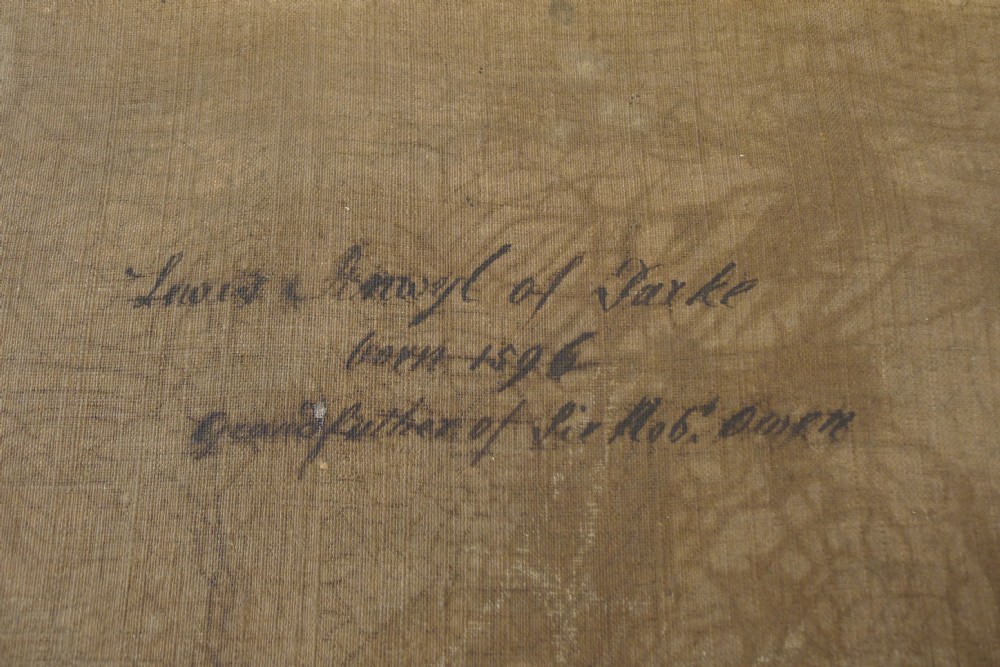 Lewis Anwyl of Parke
born 1596
Grandfather of Sir Robt. Owen